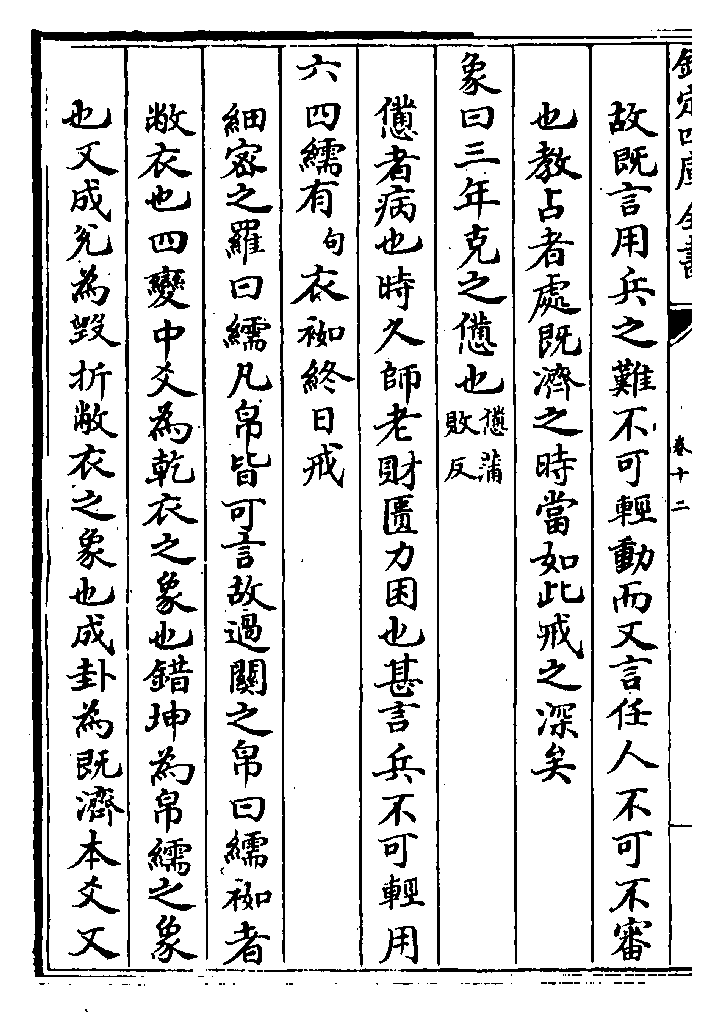 欽定四庫全書
卷十二
故既言用兵之難不可輕動而又言任人不可不審
也教占者處既濟之時當如此戒之深矣
象曰三年克之憊也憊蒲敗反
憊者病也時久師老財匱力困也甚言兵不可輕用
六四繻有句衣袽終日戒
細密之羅曰繻凡帛皆可言故過關之帛曰繻袽者
敝衣也四變中爻為乾衣之象也錯坤為帛繻之象
也又成兌為毀折敝衣之象也成卦為既濟本爻又